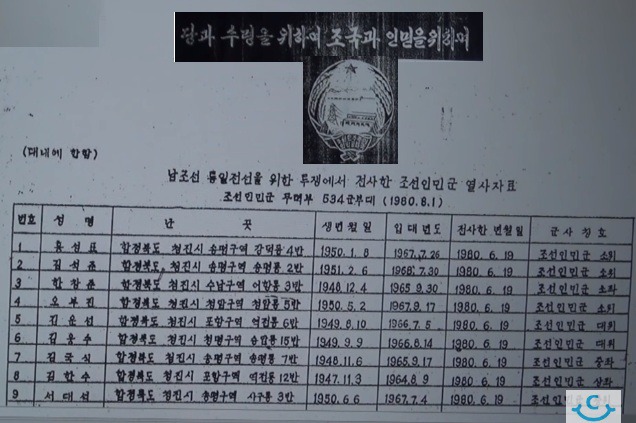 당과 수령을 위하여 조국과 인민을 위하여
(대내에 한함)
남조선 통일전선을 위한 투쟁에서 전사한 조선인민군 열사자표
조선인민군 무력부 534군부대 (1980.8.1)
번호 성 명 난 곳 생년월일 입대년도 전사한 년월일 군사 칭호
1 홍성표 함경북도 청진시 송평구역 강덕동 4반 1950.1.8 1967.7.26 1980.6.19 조선인민군 소위
2 김석준 함경북도 청진시 송평구역 송평동 2반 1951.2.6 1968.7.30 1980.6.19 조선인민군 소위
3 한창준 함경북도 청진시 수남구역 어항동 3반 1948.12.4 1965.9.30 1980.6.19 조선인민군 소좌
4 오부진 함경북도 청진시 청암구역 청암동 5반 1950.5.2 1967.9.17 1980.6.19 조선인민군 소위
5 김운선 함경북도 청진시 포항구역 역전동 6반 1949.8.10 1966.7.5 1980.6.19 조선인민군 대위
6 김용수 함경북도 청진시 청평구역 송림동 15반 1949.9.9 1966.8.14 1980.6.19 조선인민군 대위
7 김국식 함경북도 청진시 송평구역 송평동 7반 1948.11.6 1965.9.17 1980.6.19 조선인민군 중좌
8 김한수 함경북도 청진시 포항구역 역전동 12반 1947.11.3 1964.8.9 1980.6.19 조선인민군 상좌
9 서대선 함경북도 청진시 송평구역 사구동 3반 1950.6.6 1967.7.4 1980.6.19 조선인민군
C